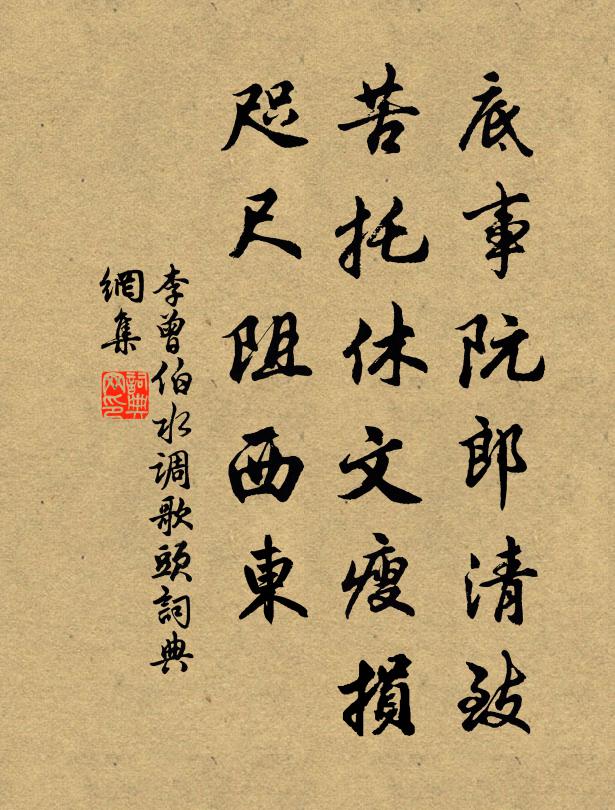 底事阮郎清致
苦托休文瘦損
咫尺阻西東
李曾伯水调歌頭詞典
網集
詞典
网印